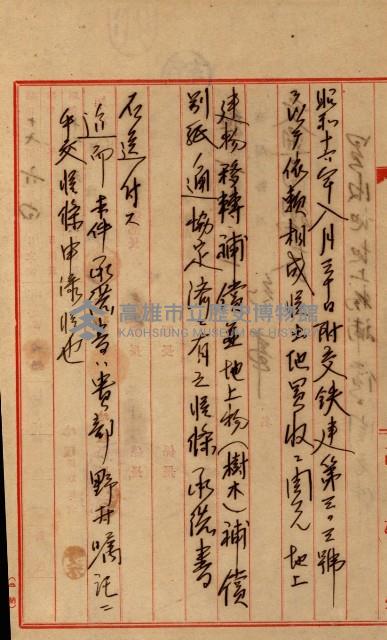 昭和十六年八月三十日附交鉄建第三〇三號
ヲ以テ依賴相成候土地買收ニ関元地上
建物移轉補償並地上物(樹木)補償
別紙通協定済ニ有之候條承諾書
右送付ス
追而本件承諾書ハ貴部野村囑託ニ
手交候條申添候也
高雄市立歷史博物館
KAOHSIUNG MUSEUM OF HISTORY